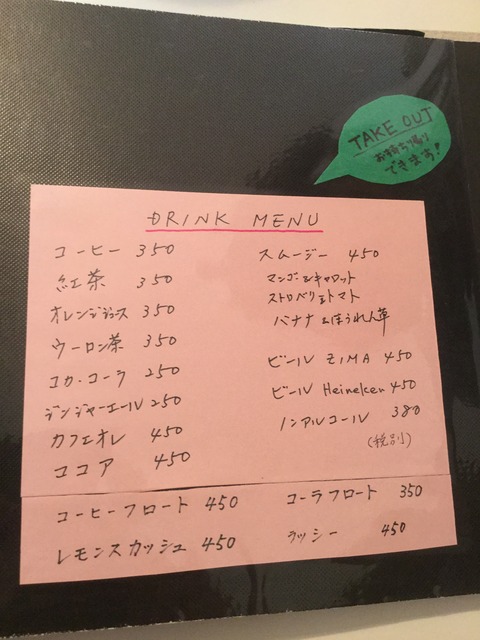 TAKE OUT
お持ち帰り
できます!
DRINK MENU
コーヒー 350
紅茶 350
オレンジジュース 350
ウーロン茶 350
コカ・コーラ 250
ジンジャーエール 250
カフェオレ 450
ココア 450
スムージー 450
マンゴー&キャロット
ストロベリー&トマト
バナナ&ほうれん草
ビール ZIMA 450
ビール Heineken 450
ノンアルコール 380
(税別)
コーヒーフロート 450
レモンスカッシュ 450
コーラフロート 350
ラッシー 450